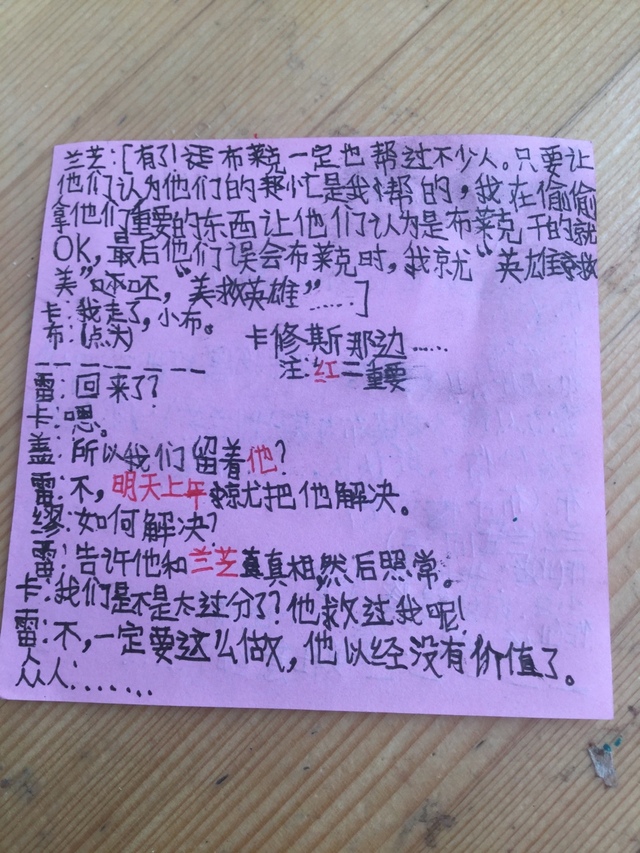 兰芝:[有了!布莱克一定也帮过不少人。只要让
他们认为他们的忙是我帮的,我在偷偷
拿他们重要的东西让他们认为是布莱克干的就
OK,最后他们误会布莱克时,我就“英雄救
美”呸呸,“美救英雄”……]
卡:我走了,小布。
布:(点头)
卡修斯那边……
注:红=重要
雷:回来了?
卡:嗯。
盖:所以我们留着他?
雷:不,明天上午就把他解决。
缪:如何解决?
雷:告许他和兰芝真相,然后照常。
卡:我们是不是太过分了?他救过我呢!
雷:不,一定要这么做,他以经没有价值了。
众人:.......